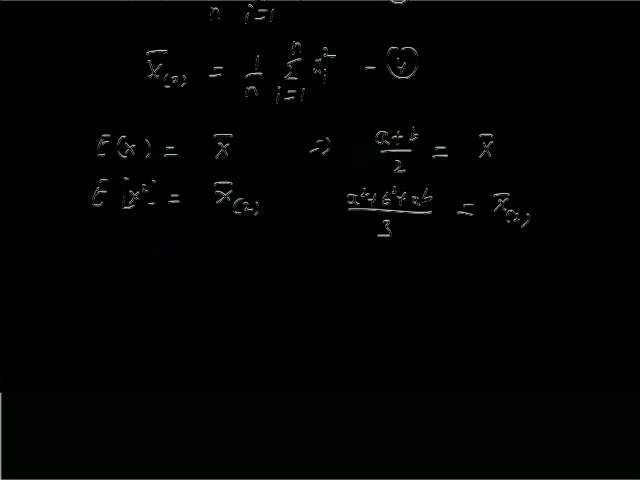 n i=1
x̄₍₂₎ = 1/n Σ_{i=1}^{n} x_i² - (4)
E(x) = x̄ ⇒ (a+b)/2 = x̄
E[x²] = x̄₍₂₎ (a²+b²+ab)/3 = x̄₍₂₎